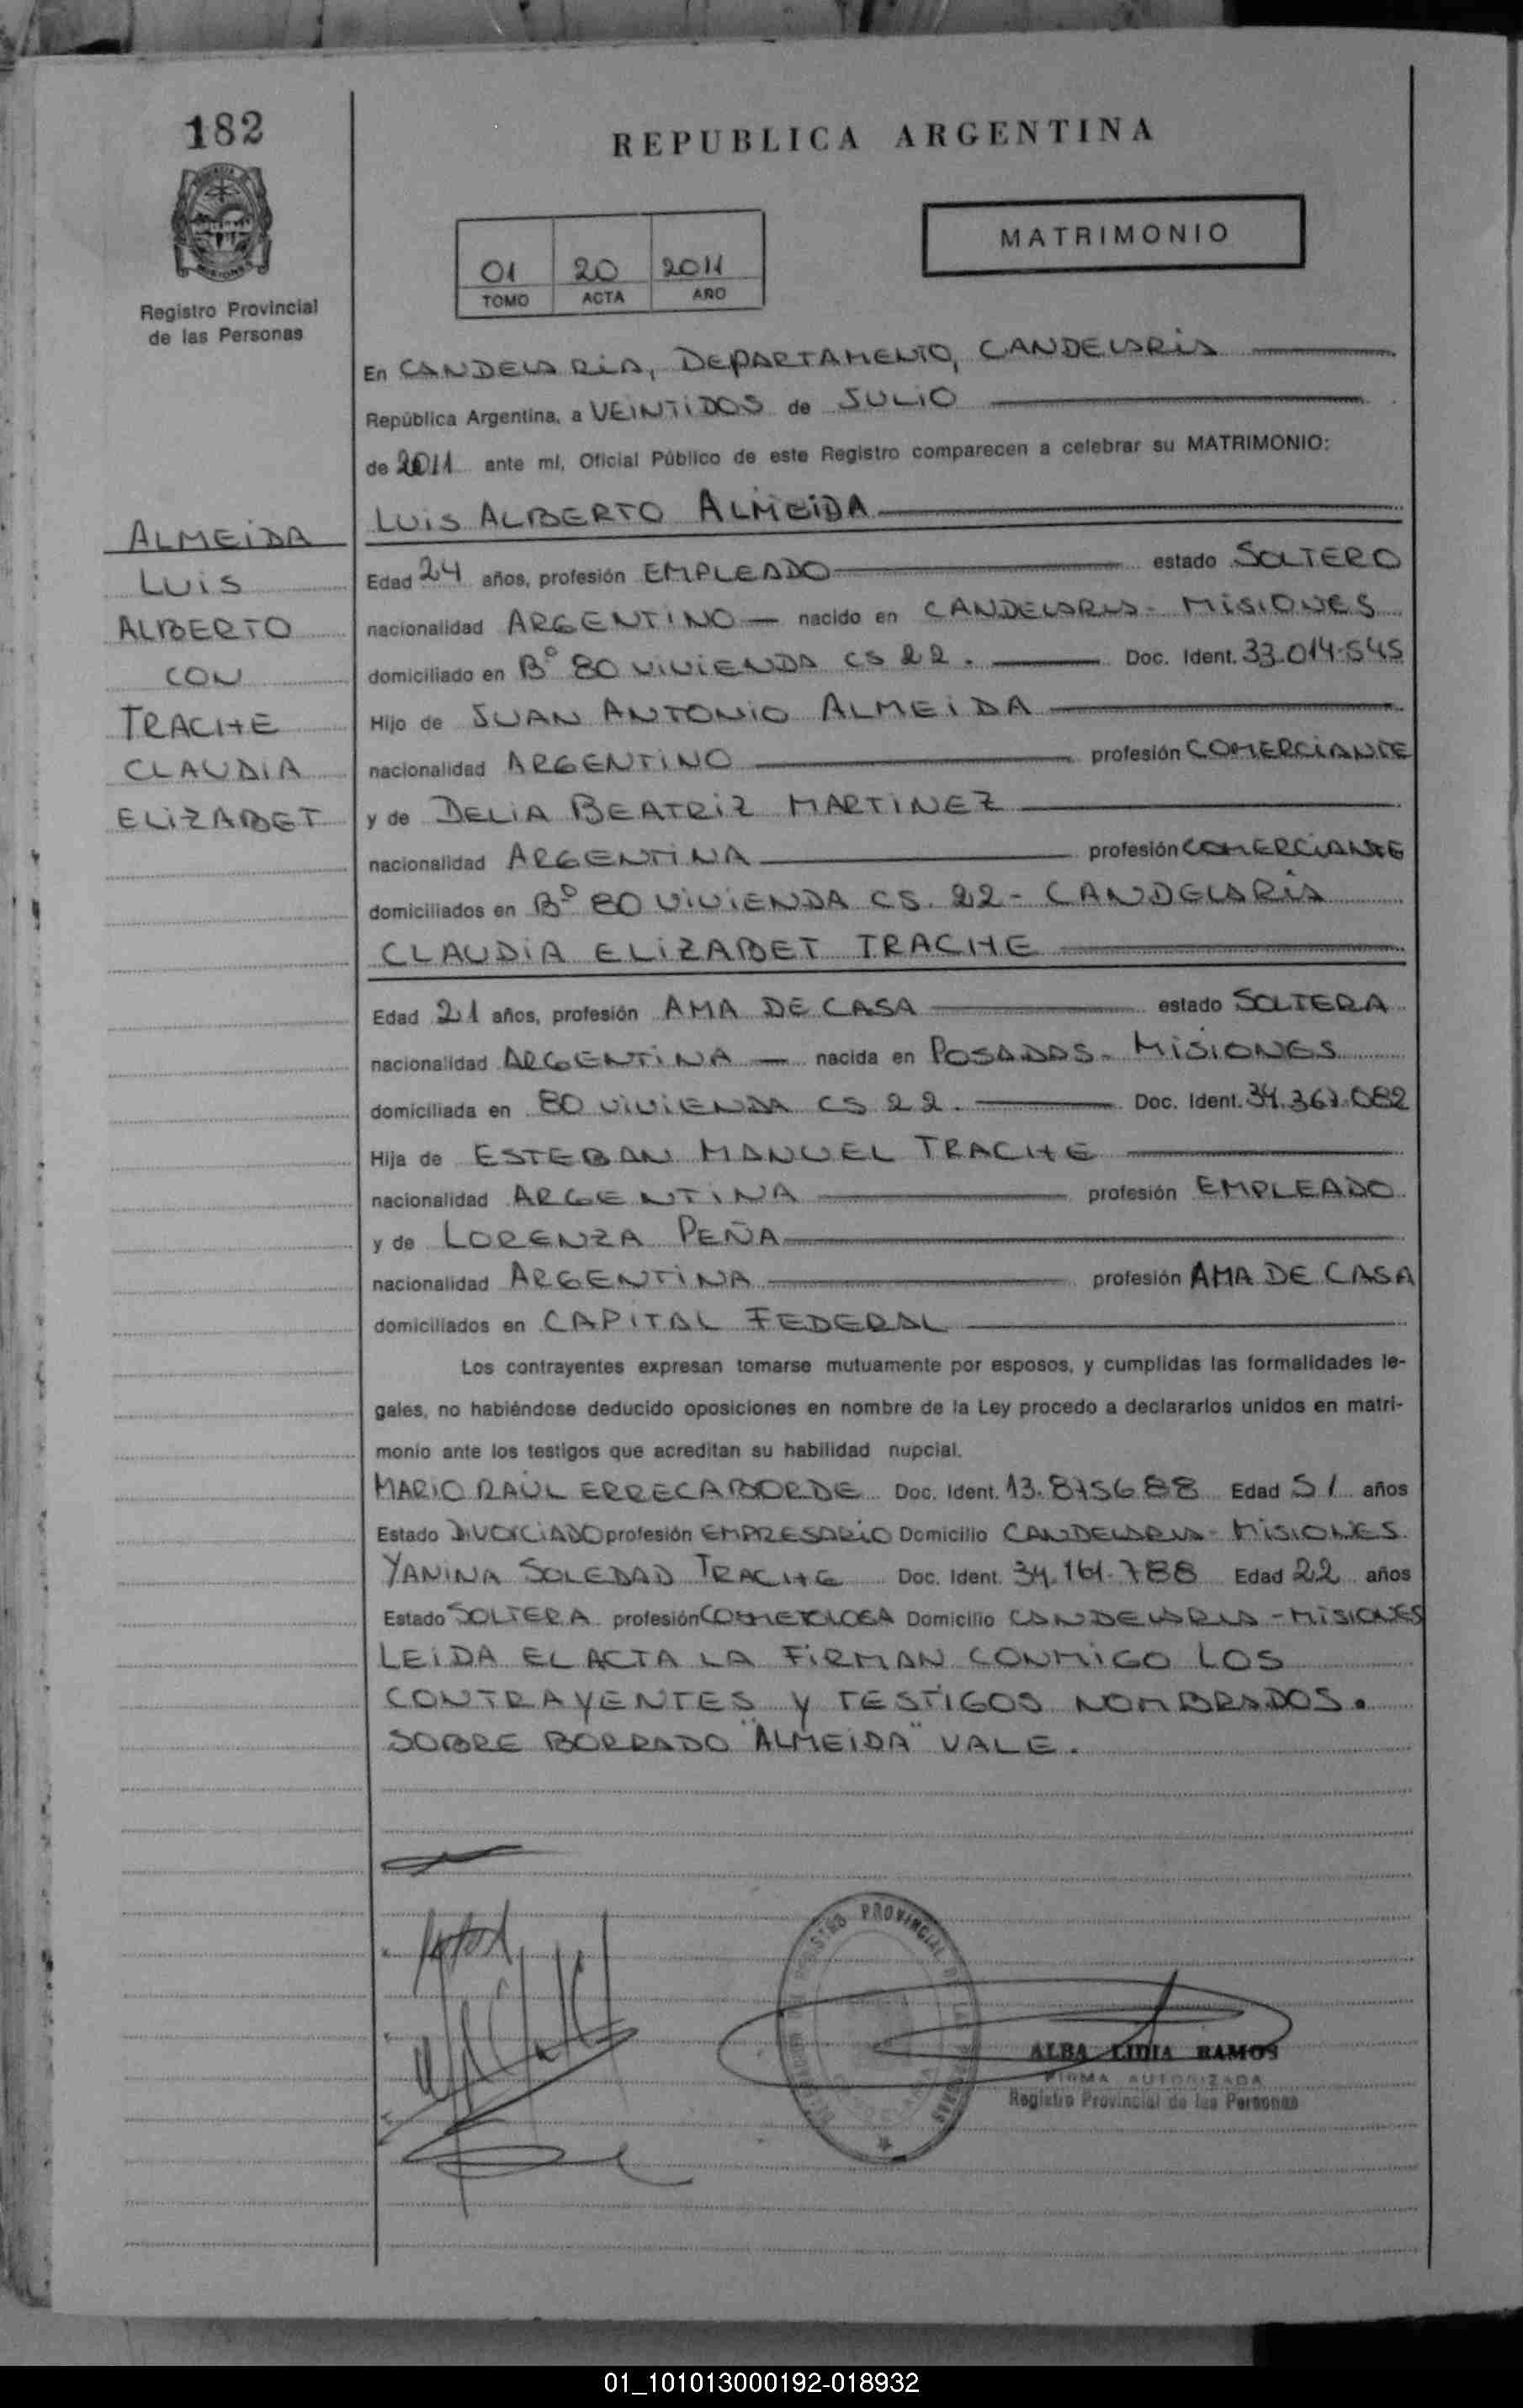 182
REPUBLICA ARGENTINA
MATRIMONIO
01 20 2011
TOMO ACTA AÑO
Registro Provincial
de las Personas
En CANDELARIA, DEPARTAMENTO, CANDELARIA
República Argentina, a VEINTIDOS de JULIO
de 2011 ante mí, Oficial Público de este Registro comparecen a celebrar su MATRIMONIO:
ALMEIDA
LUIS
ALBERTO
CON
TRACHE
CLAUDIA
ELIZABET
LUIS ALBERTO ALMEIDA
Edad 24 años, profesión EMPLEADO estado SOLTERO
nacionalidad ARGENTINO nacido en CANDELARIA - MISIONES
domiciliado en Bº 80 VIVIENDA CS 22. Doc. Ident. 33.014.545
Hijo de JUAN ANTONIO ALMEIDA
nacionalidad ARGENTINO profesión COMERCIANTE
y de DELIA BEATRIZ MARTINEZ
nacionalidad ARGENTINA profesión COMERCIANTE
domiciliados en Bº 80 VIVIENDA CS. 22 - CANDELARIA
CLAUDIA ELIZABET TRACHE
Edad 21 años, profesión AMA DE CASA estado SOLTERA
nacionalidad ARGENTINA nacida en POSADAS - MISIONES
domiciliada en 80 VIVIENDA CS 22. Doc. Ident. 34.367.082
Hija de ESTEBAN MANUEL TRACHE
nacionalidad ARGENTINA profesión EMPLEADO
y de LORENZA PEÑA
nacionalidad ARGENTINA profesión AMA DE CASA
domiciliados en CAPITAL FEDERAL
Los contrayentes expresan tomarse mutuamente por esposos, y cumplidas las formalidades le-
gales, no habiéndose deducido oposiciones en nombre de la Ley procedo a declararlos unidos en matri-
monio ante los testigos que acreditan su habilidad nupcial.
MARIO RAUL ERRECABORDE Doc. Ident. 13.875688 Edad 51 años
Estado DIVORCIADO profesión EMPRESARIO Domicilio CANDELARIA - MISIONES
YANINA SOLEDAD TRACHE Doc. Ident. 34.161.788 Edad 22 años
Estado SOLTERA profesión COSMETOLOGA Domicilio CANDELARIA - MISIONES
LEIDA EL ACTA LA FIRMAN CONMIGO LOS
CONTRAYENTES Y TESTIGOS NOMBRADOS.
SOBRE BORRADO "ALMEIDA" VALE.
PROVINCIAL DE LAS PERSONAS
ALBA LIDIA RAMOS
FIRMA AUTORIZADA
Registro Provincial de las Personas
01_101013000192-018932